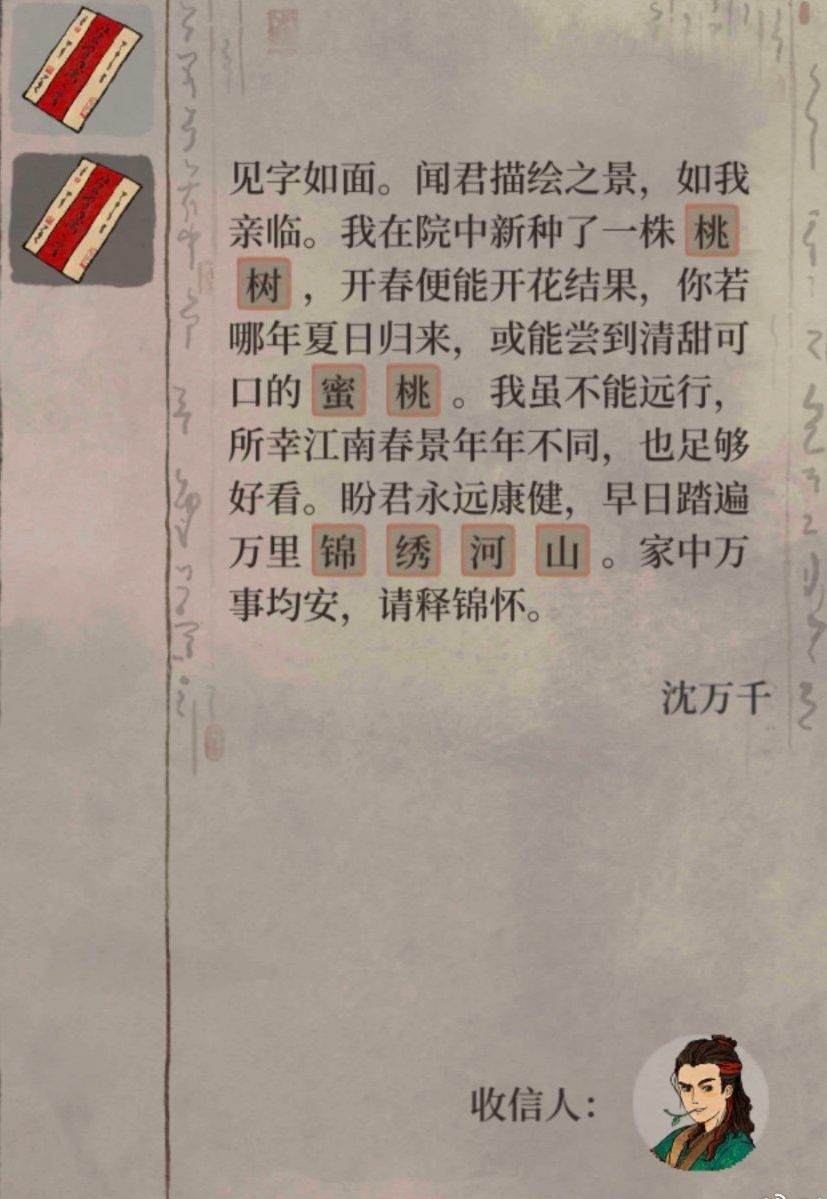 见字如面。闻君描绘之景，如我
亲临。我在院中新种了一株桃
树，开春便能开花结果，你若
哪年夏日归来，或能尝到清甜可
口的蜜桃。我虽不能远行，
所幸江南春景年年不同，也足够
好看。盼君永远康健，早日踏遍
万里锦绣河山。家中万
事均安，请释锦怀。
沈万千
收信人：